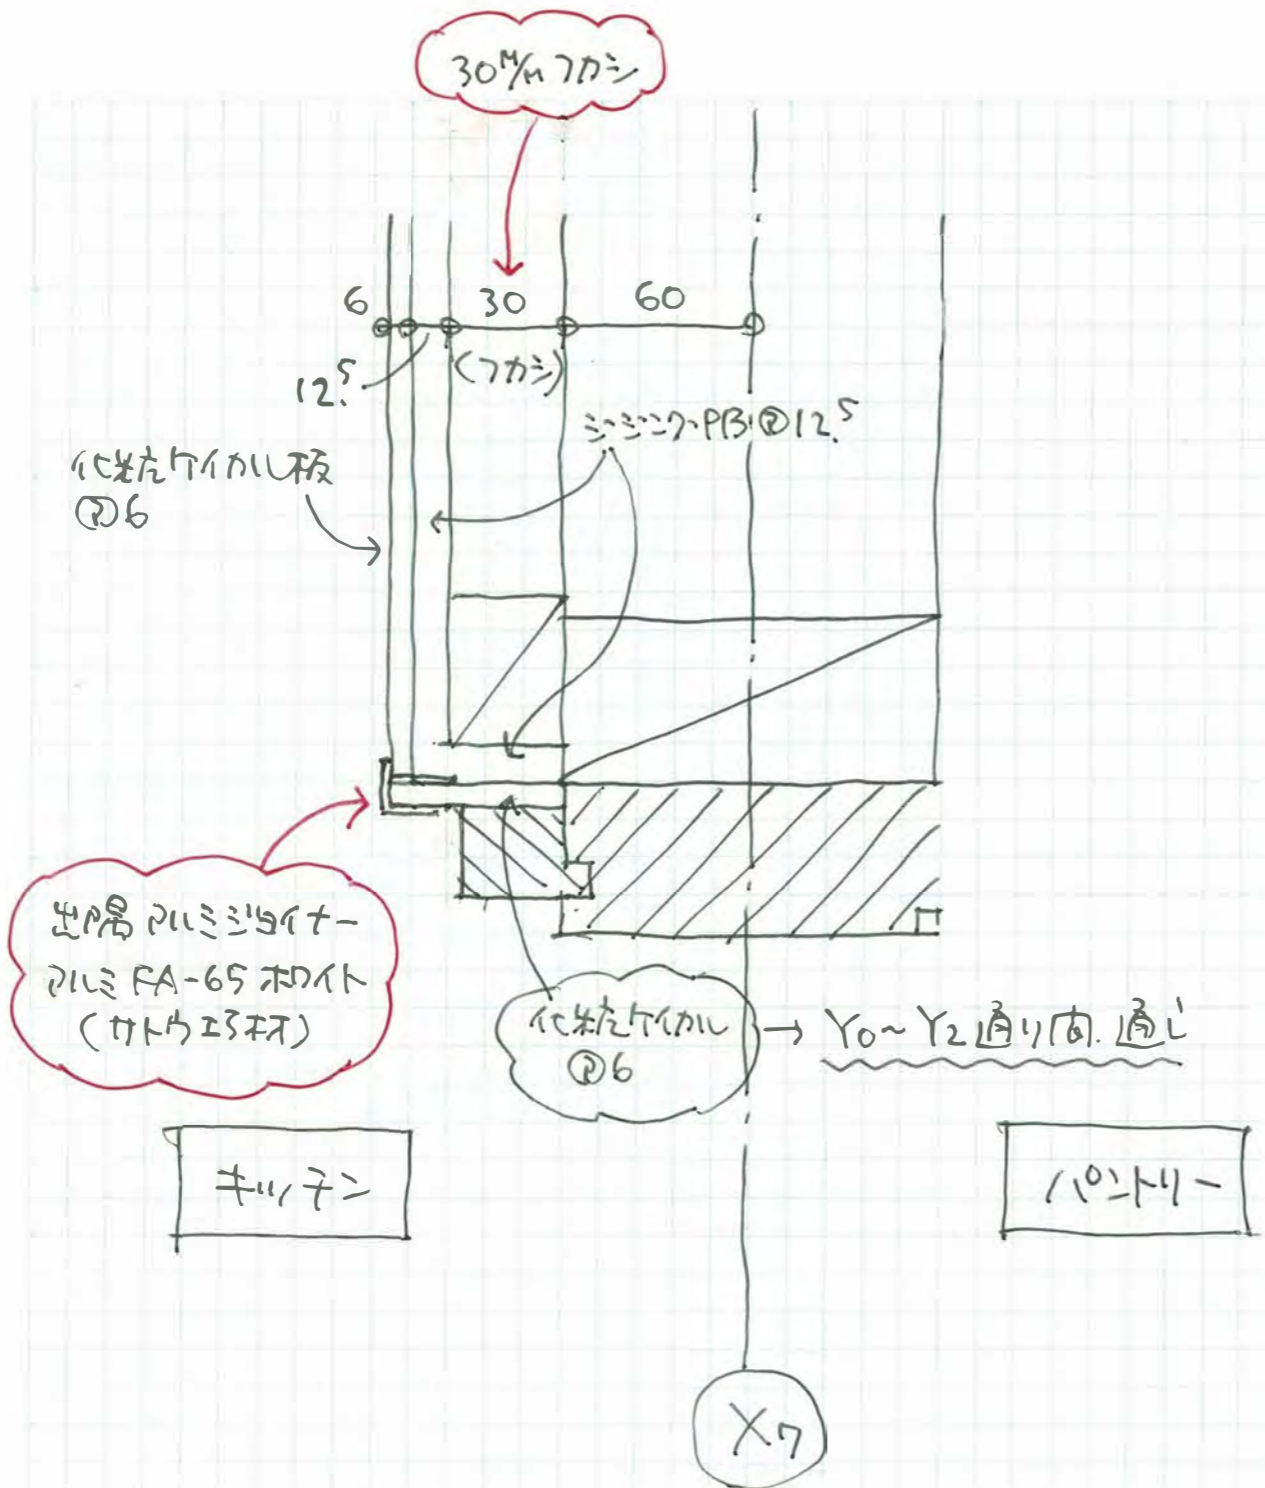 30M/Mフカシ
6
30
60
12.5
(フカシ)
シージングPBⓉ12.5
化粧ケイカル板
Ⓣ6
出隅アルミジョイナー
アルミFA-65ホワイト
(サトウエ材)
化粧ケイカル
Ⓣ6
→ Y0~Y2通り間.通し
キッチン
パントリー
X7